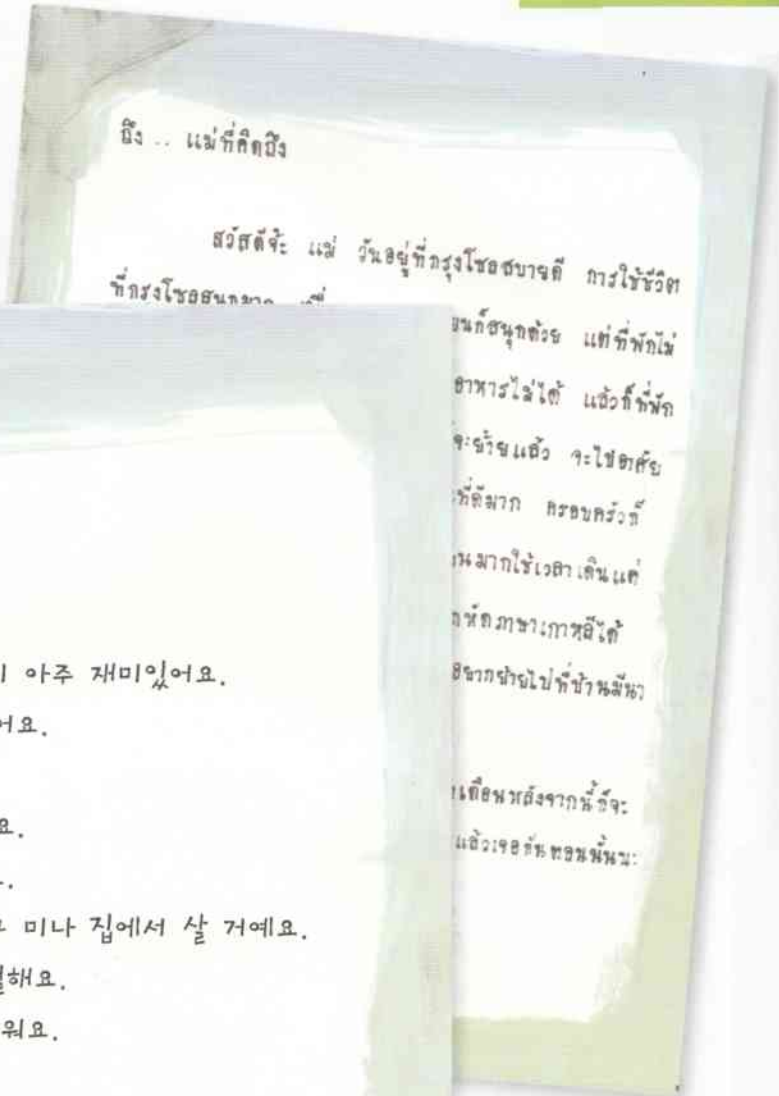 ถึง .. แม่ที่คิดถึง
สวัสดีจ้ะ แม่ วันอยู่ที่กรุงโซลสบายดี การใช้ชีวิต
ที่กรุงโซลสนุกมาก
ก็สนุกด้วย แต่ที่พักไม่
อาหารไม่ได้ แล้วก็ที่พัก
จะย้ายแล้ว จะไปอาศัย
ที่ดีมาก ครอบครัวก็
มากใช้เวลาเดินแค่
หัดภาษาเกาหลีได้
อยากย้ายไปที่บ้านมีนา
เดือนหลังจากนี้ก็จะ
แล้วเจอกันตอนนั้นนะ
아주 재미있어요.
어요.
요.
미나 집에서 살 거예요.
해요.
워요.